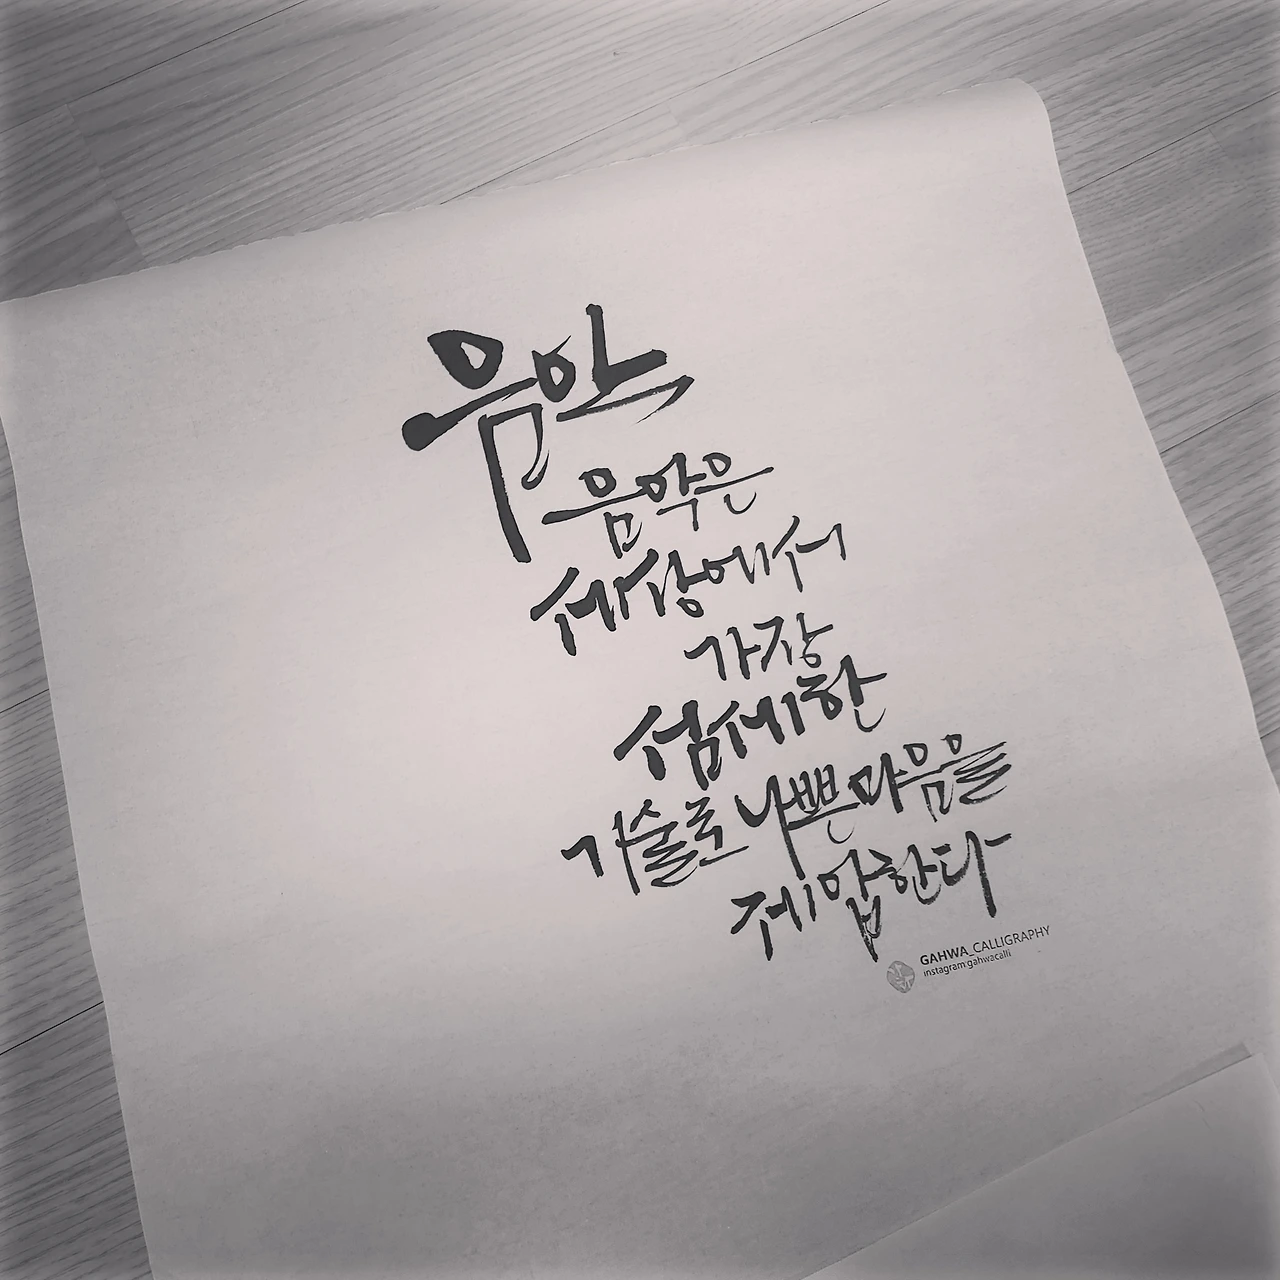 음악
음악은
세상에서
가장
섬세한
기술로 나쁜 마음을
제압한다
GAHWA_CALLIGRAPHY
instagram gahwacalli